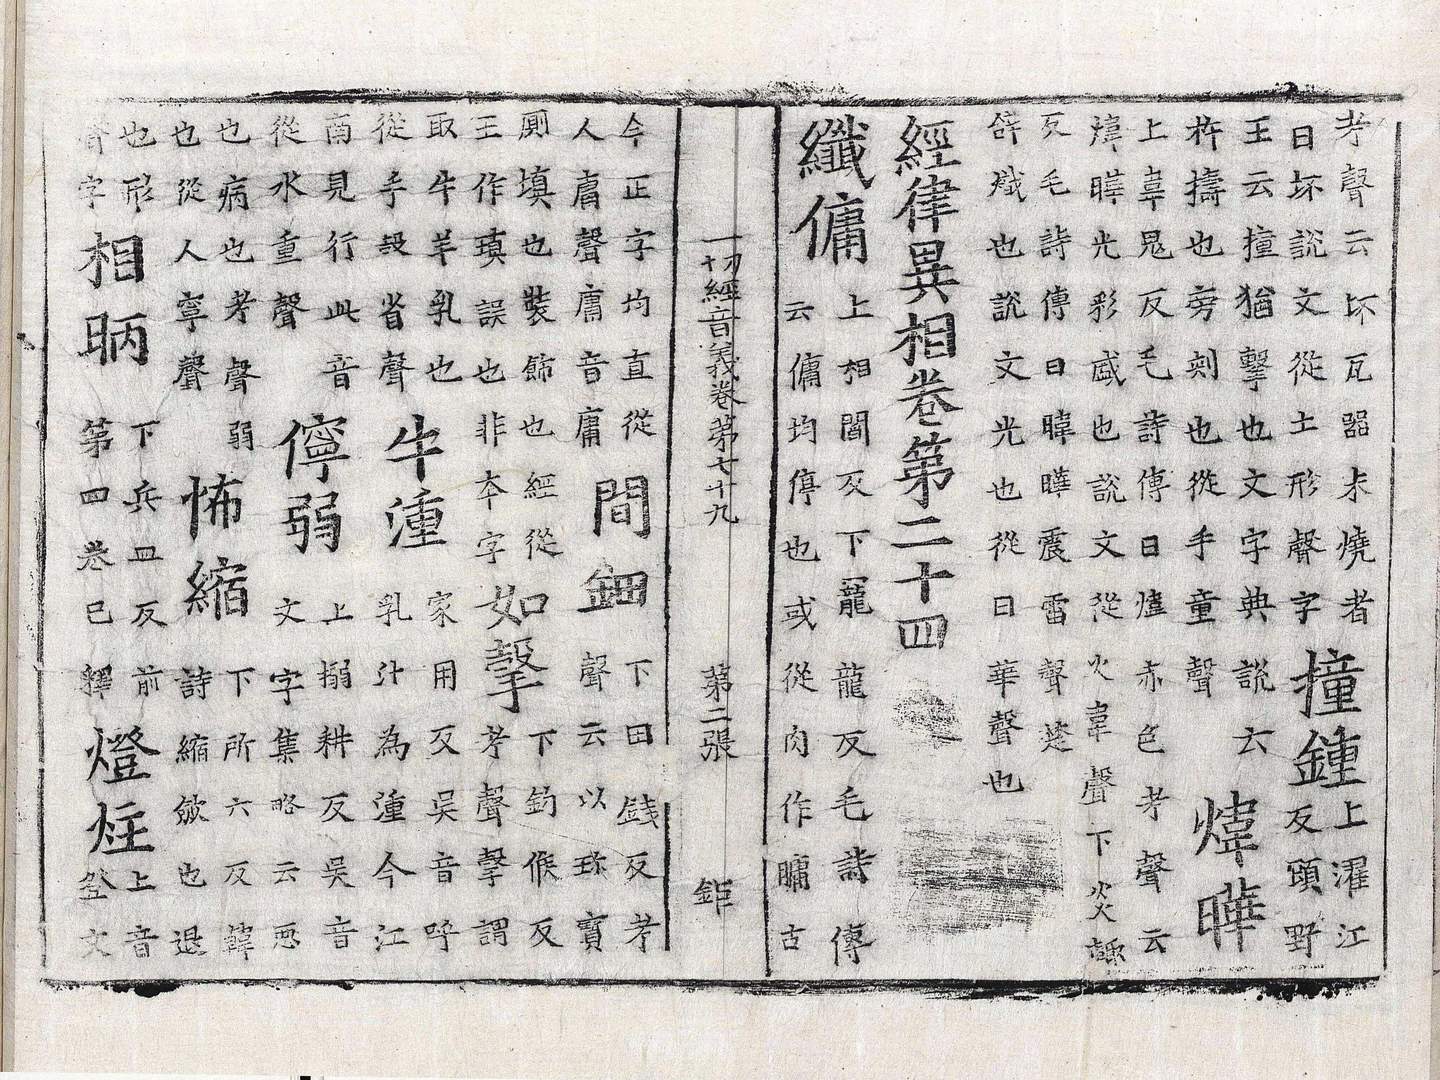 考聲云坏瓦器未燒者
曰坏說文從土形聲字
撞鍾
上濯江
反頭野
王云撞猶擊也文字典說云
杵擣也旁刺也從手童聲
煒曄
上韋鬼反毛詩傳曰煒赤色考聲云
煒曄光彩盛也說文從火韋聲下炎輒
反毛詩傳曰暐曄震雷聲楚
辝爁也說文光也從日華聲也
經律異相卷第二十四
纖傭
上相閻反下寵龍反毛詩傳
云傭均停也或從肉作𦟛古
一切經音義卷第七十九 第二張 鉅
今正字均直從
人膚聲膚音庸
間鈿
下田銭反考
聲云以珎寶
廁填也裝飾也經從
王作瑱誤也非本字
如𤚼
下鈎候反
考聲𤚼謂
取牛羊乳也
從手殸省聲
牛湩
家用反吳音呼
乳汁為湩今江
南見行此音
從水重聲
儜弱
上搦耕反吳音
文字集略云惡
也病也考聲弱
也從人寧聲
怖縮
下所六反韓
詩縮斂也退
也形
聲字
相昞
下兵皿反前
第四卷已釋
燈炷
上音
登文